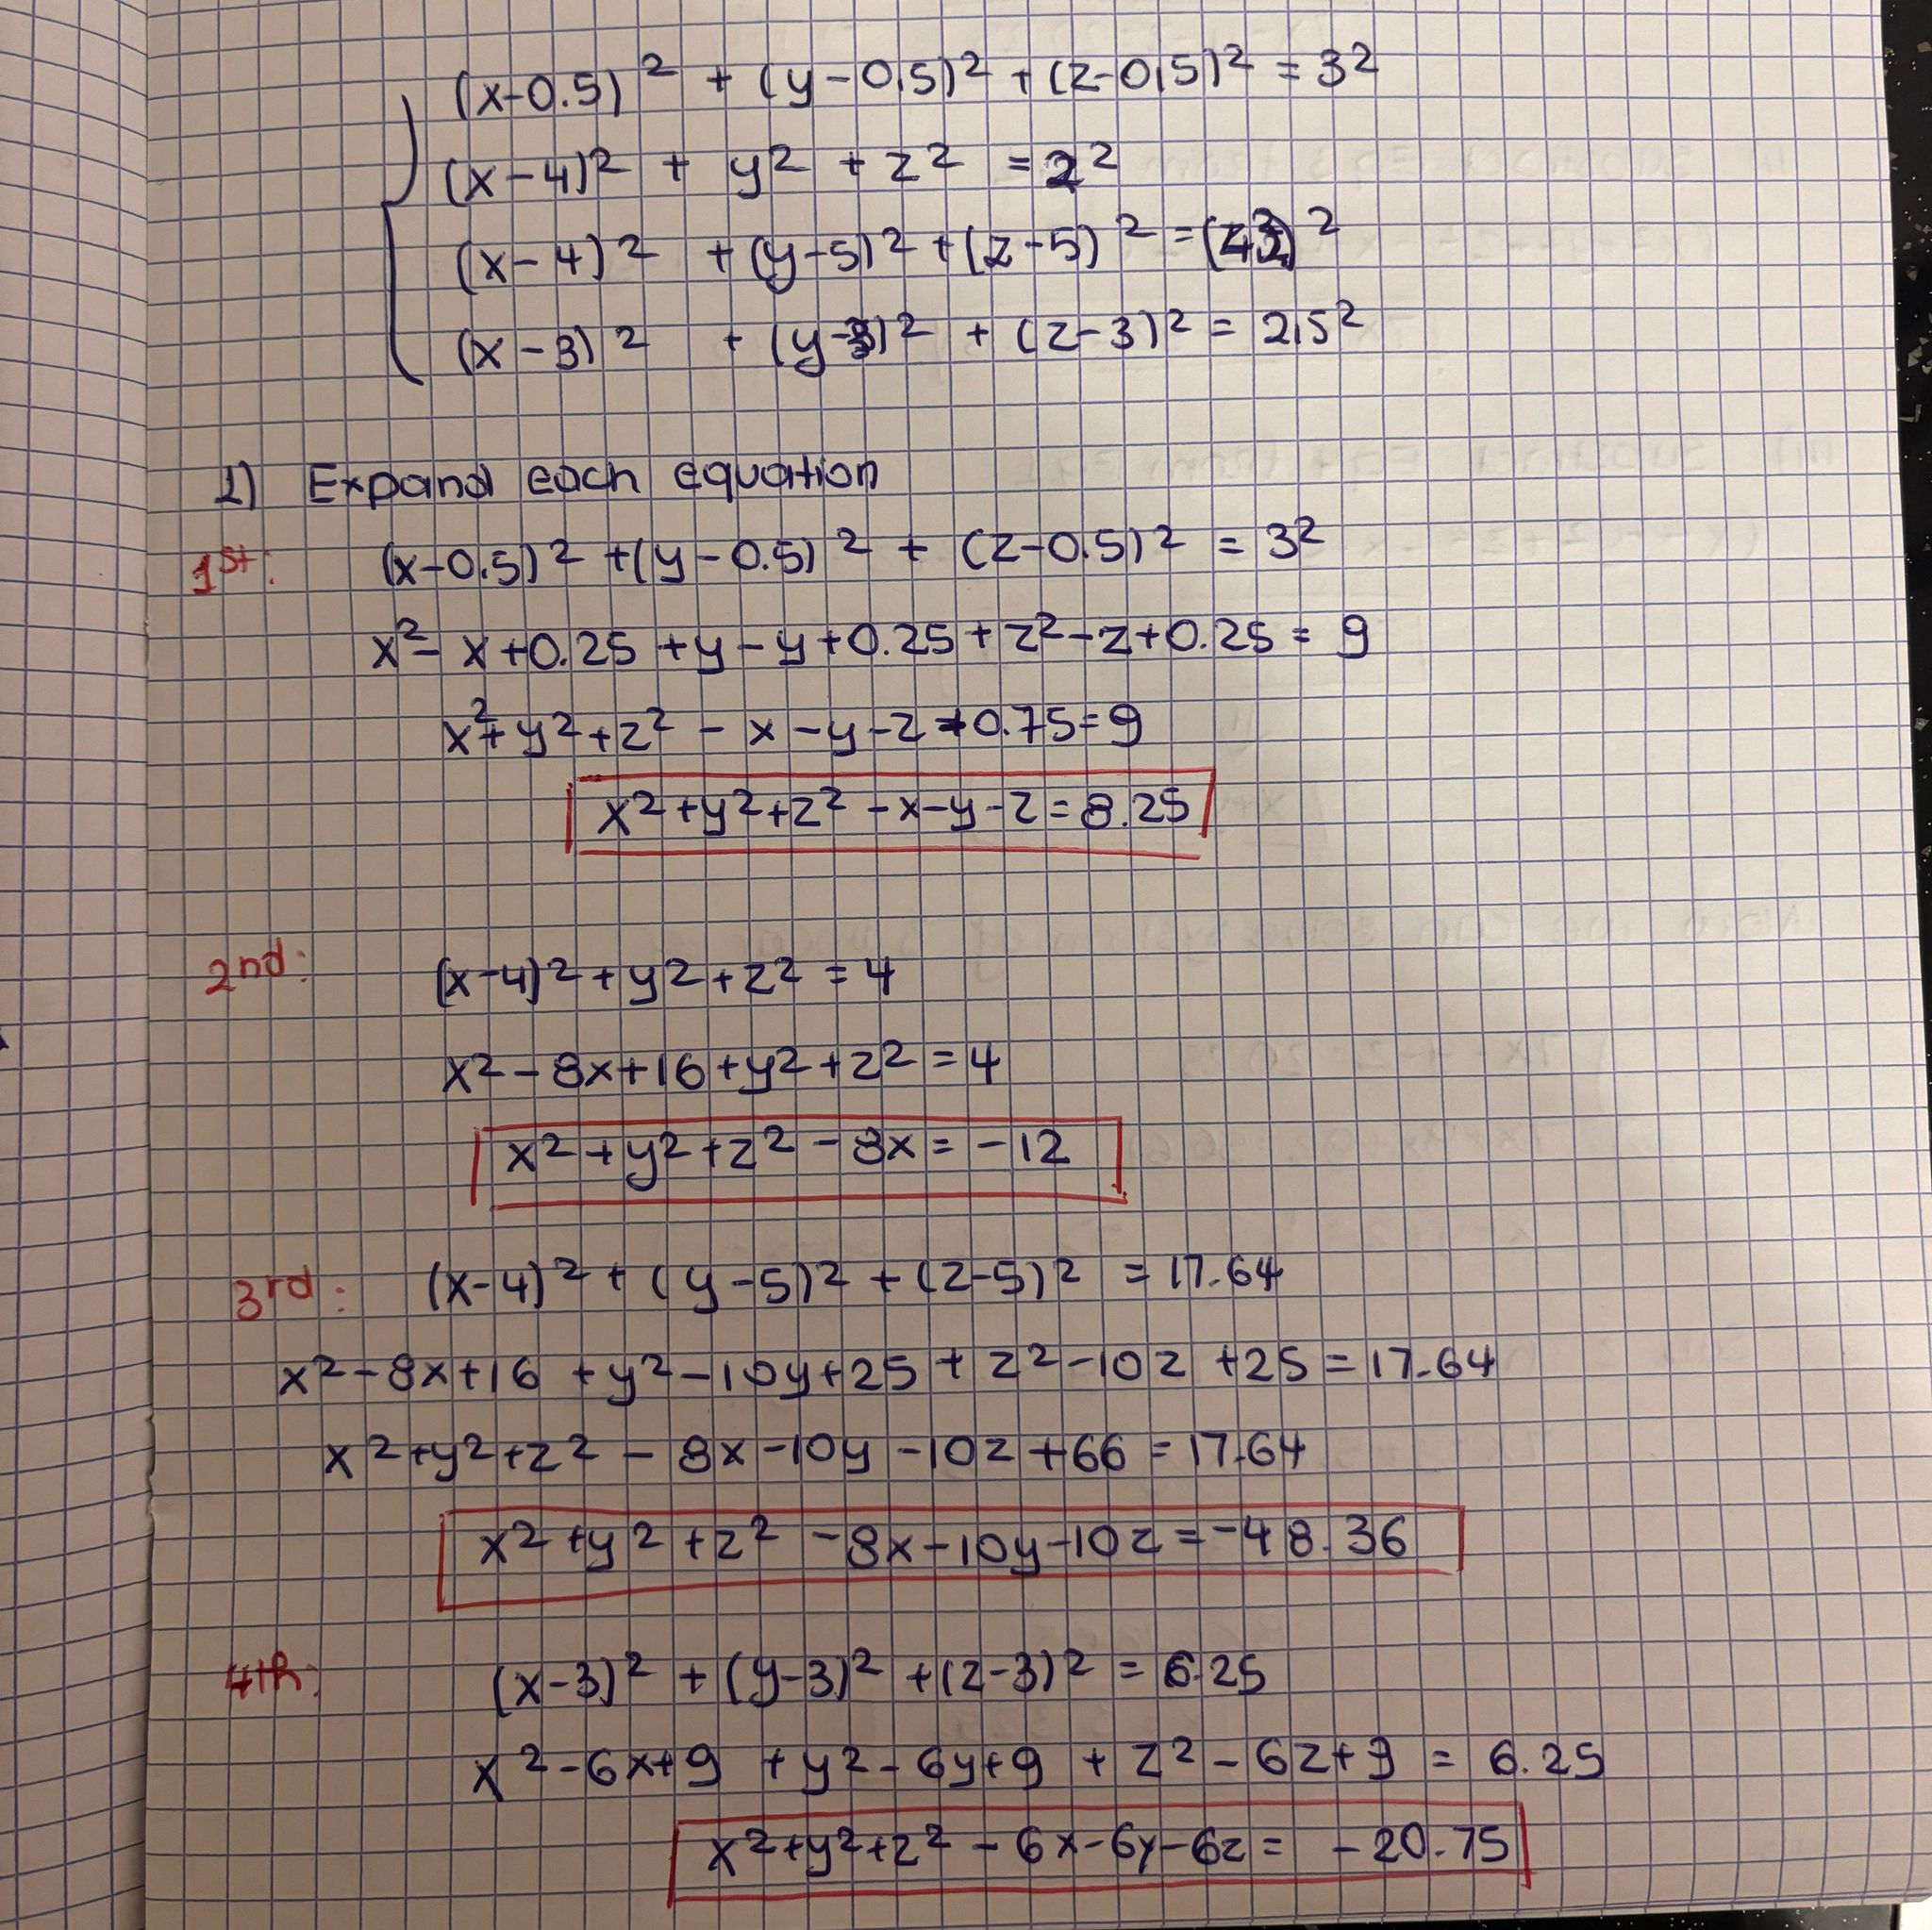 (x-0.5)² + (y-0,5)² + (z-0,5)² = 3²
(x-4)² + y² + z² = 2²
(x-4)² + (y-5)² + (z-5)² = ( )²
(x-3)² + (y-3)² + (z-3)² = 2,5²
1) Expand each equation
1st: (x-0.5)² + (y-0.5)² + (z-0.5)² = 3²
x² - x + 0.25 + y - y + 0.25 + z² - z + 0.25 = 9
x² + y² + z² - x - y - z + 0.75 = 9
x² + y² + z² - x - y - z = 8.25
2nd: (x-4)² + y² + z² = 4
x² - 8x + 16 + y² + z² = 4
x² + y² + z² - 8x = -12
3rd: (x-4)² + (y-5)² + (z-5)² = 17.64
x² - 8x + 16 + y² - 10y + 25 + z² - 10z + 25 = 17.64
x² + y² + z² - 8x - 10y - 10z + 66 = 17.64
x² + y² + z² - 8x - 10y - 10z = -48.36
4th: (x-3)² + (y-3)² + (z-3)² = 6.25
x² - 6x + 9 + y² - 6y + 9 + z² - 6z + 9 = 6.25
x² + y² + z² - 6x - 6y - 6z = -20.75